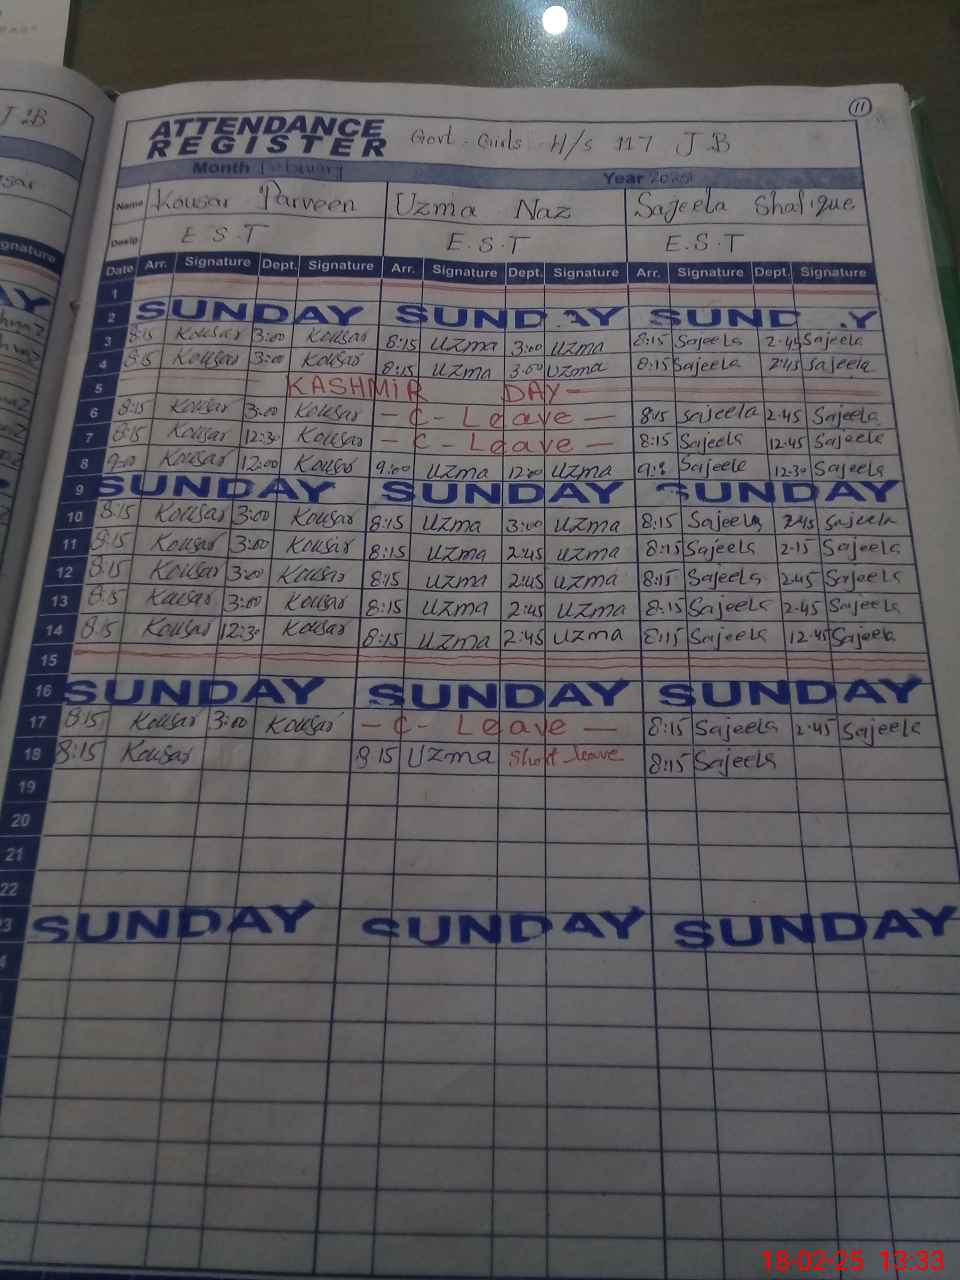 11
ATTENDANCE REGISTER Govt. Girls H/S 117 J.B
J B
Month February Year 2025
Name Kousar Parveen Uzma Naz Sajeela Shafique
Desig E.S.T E.S.T E.S.T
Date Arr. Signature Dept. Signature Arr. Signature Dept. Signature Arr. Signature Dept. Signature
1
2 SUNDAY SUNDAY SUND Y
3 8:15 Kousar 3:00 Kousar 8:15 Uzma 3:00 Uzma 8:15 Sajeela 2:45 Sajeela
4 8:15 Kousar 3:00 Kousar 8:15 Uzma 3:00 Uzma 8:15 Sajeela 2:45 Sajeela
5 KASHMIR DAY -
6 8:15 Kousar 3:00 Kousar - C - Leave - 8:15 Sajeela 2:45 Sajeela
7 8:15 Kousar 12:30 Kousar - C - Leave - 8:15 Sajeela 12:45 Sajeela
8 9:00 Kousar 12:00 Kousar 9:00 Uzma 12:00 Uzma Sajeela 12:30 Sajeela
9 SUNDAY SUNDAY SUNDAY
10 8:15 Kousar 3:00 Kousar 8:15 Uzma 3:00 Uzma 8:15 Sajeela 2:45 Sajeela
11 8:15 Kousar 3:00 Kousar 8:15 Uzma 2:45 Uzma 8:15 Sajeela 2:15 Sajeela
12 8:15 Kousar 3:00 Kousar 8:15 Uzma 2:45 Uzma 8:15 Sajeela 2:45 Sajeela
13 8:15 Kousar 3:00 Kousar 8:15 Uzma 2:45 Uzma 8:15 Sajeela 2:45 Sajeela
14 8:15 Kousar 12:30 Kousar 8:15 Uzma 2:45 Uzma 8:15 Sajeela 12:45 Sajeela
15
16 SUNDAY SUNDAY SUNDAY
17 8:15 Kousar 3:00 Kousar - C - Leave - 8:15 Sajeela 2:45 Sajeela
18 8:15 Kousar 8:15 Uzma Short leave 8:15 Sajeela
19
20
21
22
3 SUNDAY SUNDAY SUNDAY
4
18-02-25 13:33